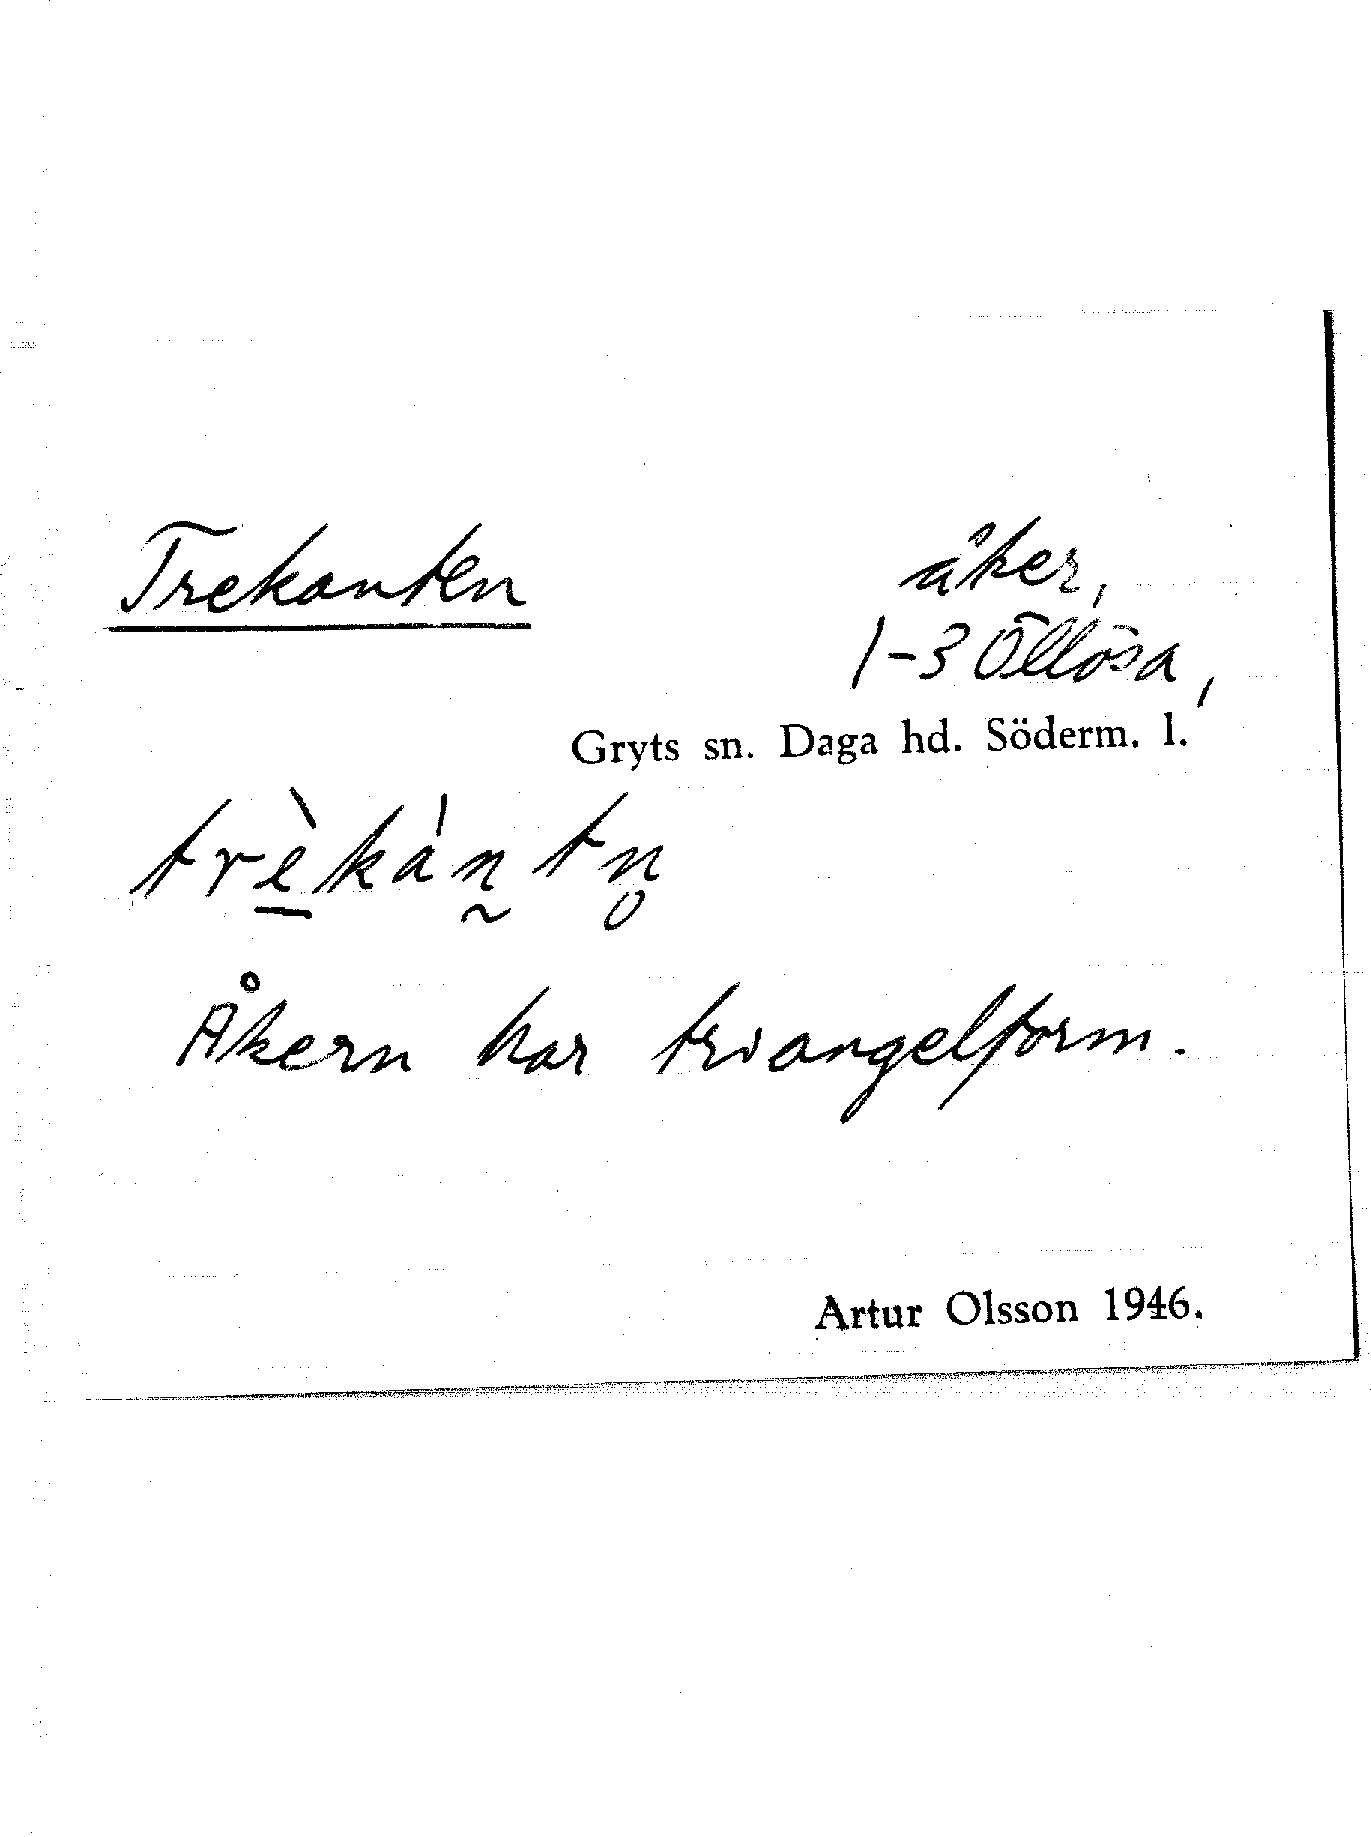 Trekanten åker,
1-3 Öllösa,
Gryts sn. Daga hd. Söderm. l.
trè̱kán̰tn̥
Åkern har triangelform.
Artur Olsson 1946.